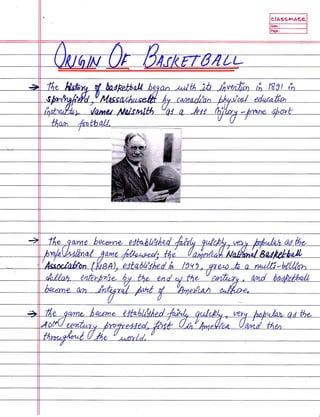 classmate
Date :
Page :
ORIGIN OF BASKETBALL
→ The History of basketball began with its invention in 1891 in
Springfield, Massachusett by canadian physical education
instructor James Naismith as a less injury-prone sport
than football.
→ The game become established fairly quickly, very popular as the
professional game followed; the American National Basketball
Association (NBA), established in 1949, grew to a multi-billion
dollar enterprise by the end of the century, and basketball
become an integral part of American culture.
→ The game become established fairly quickly, very popular as the
20th century progressed, first in America and then
throughout the world.